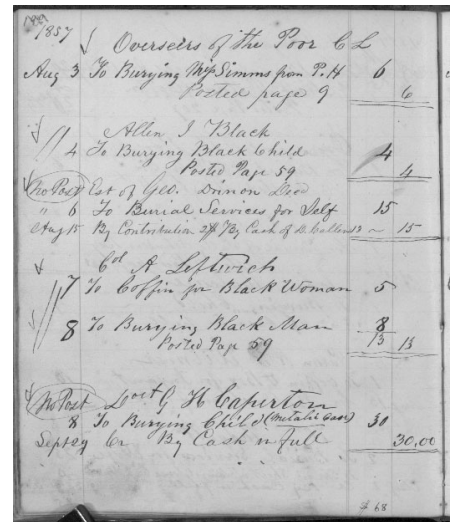 1857
Overseers of the Poor C L
Aug 3 To Burying Miss Simms from P.H 6
Posted page 9 6
Allen J Black
" 4 To Burying Black Child 4
Posted Page 59 4
No Post Est of Geo. Drinon Decd
" 6 To Burial Services for Self 15
Aug 15 By Contribution By Cash of 15
Col A Leftwich
" 7 To Coffin for Black Woman 5
8 To Burying Black Man 8
Posted Page 59 13 13
No Post G H Caperton
8 To Burying Child (Metalic Case) 30
Sept 29 Cr By Cash in full 30,00
$ 68